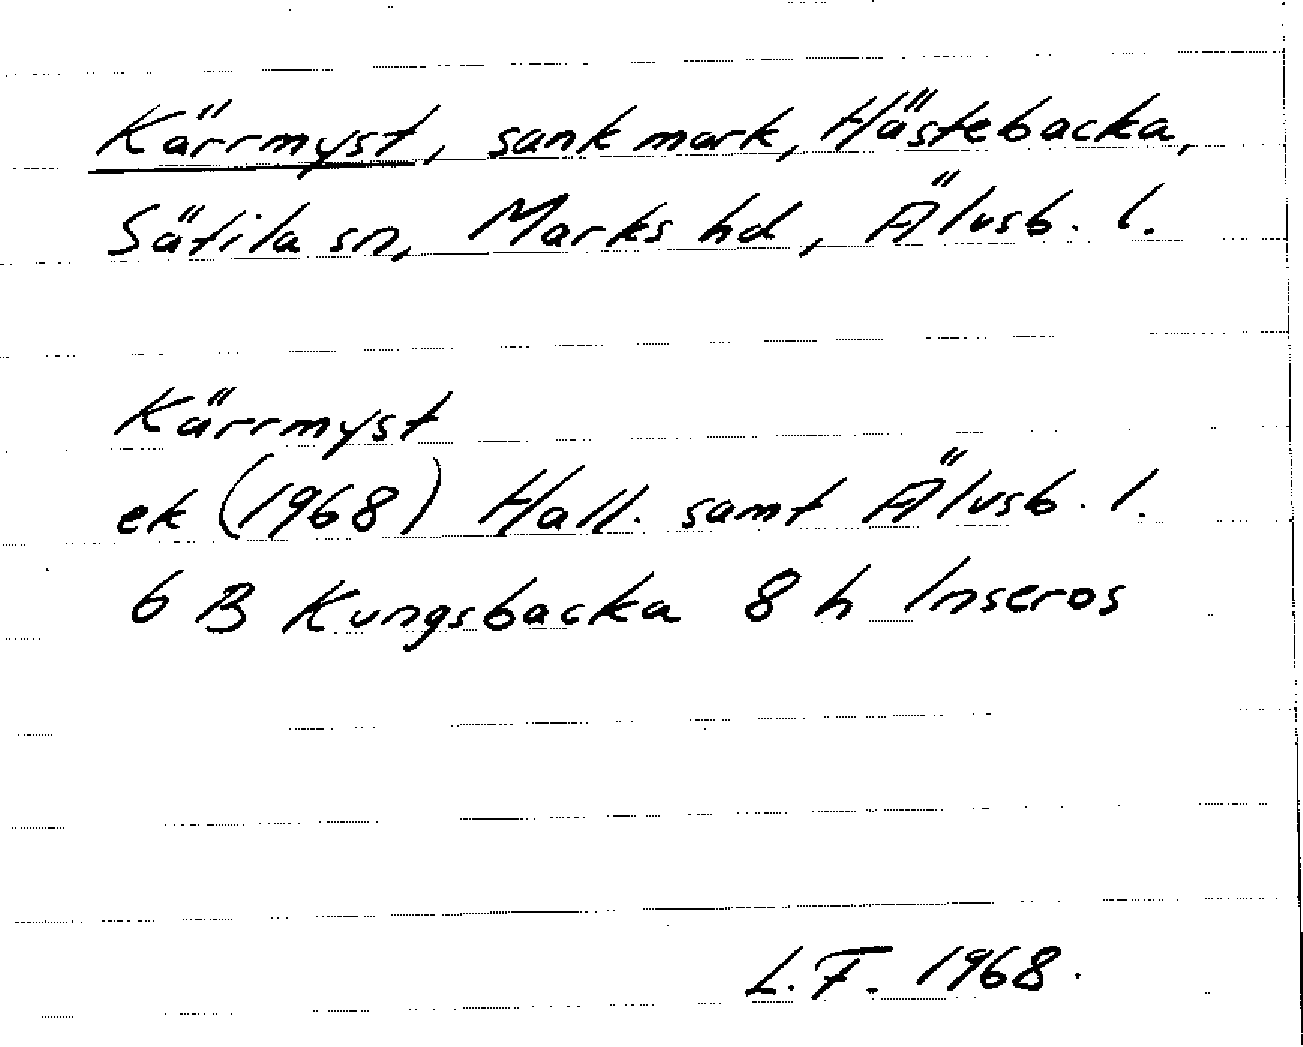 Kärrmyst, sank mark, Hästebacka,
Sätila sn, Marks hd, Älvsb. l.
Kärrmyst
ek (1968) Hall. samt Älvsb. l.
6 B Kungsbacka 8 h Inseros
L.F. 1968.